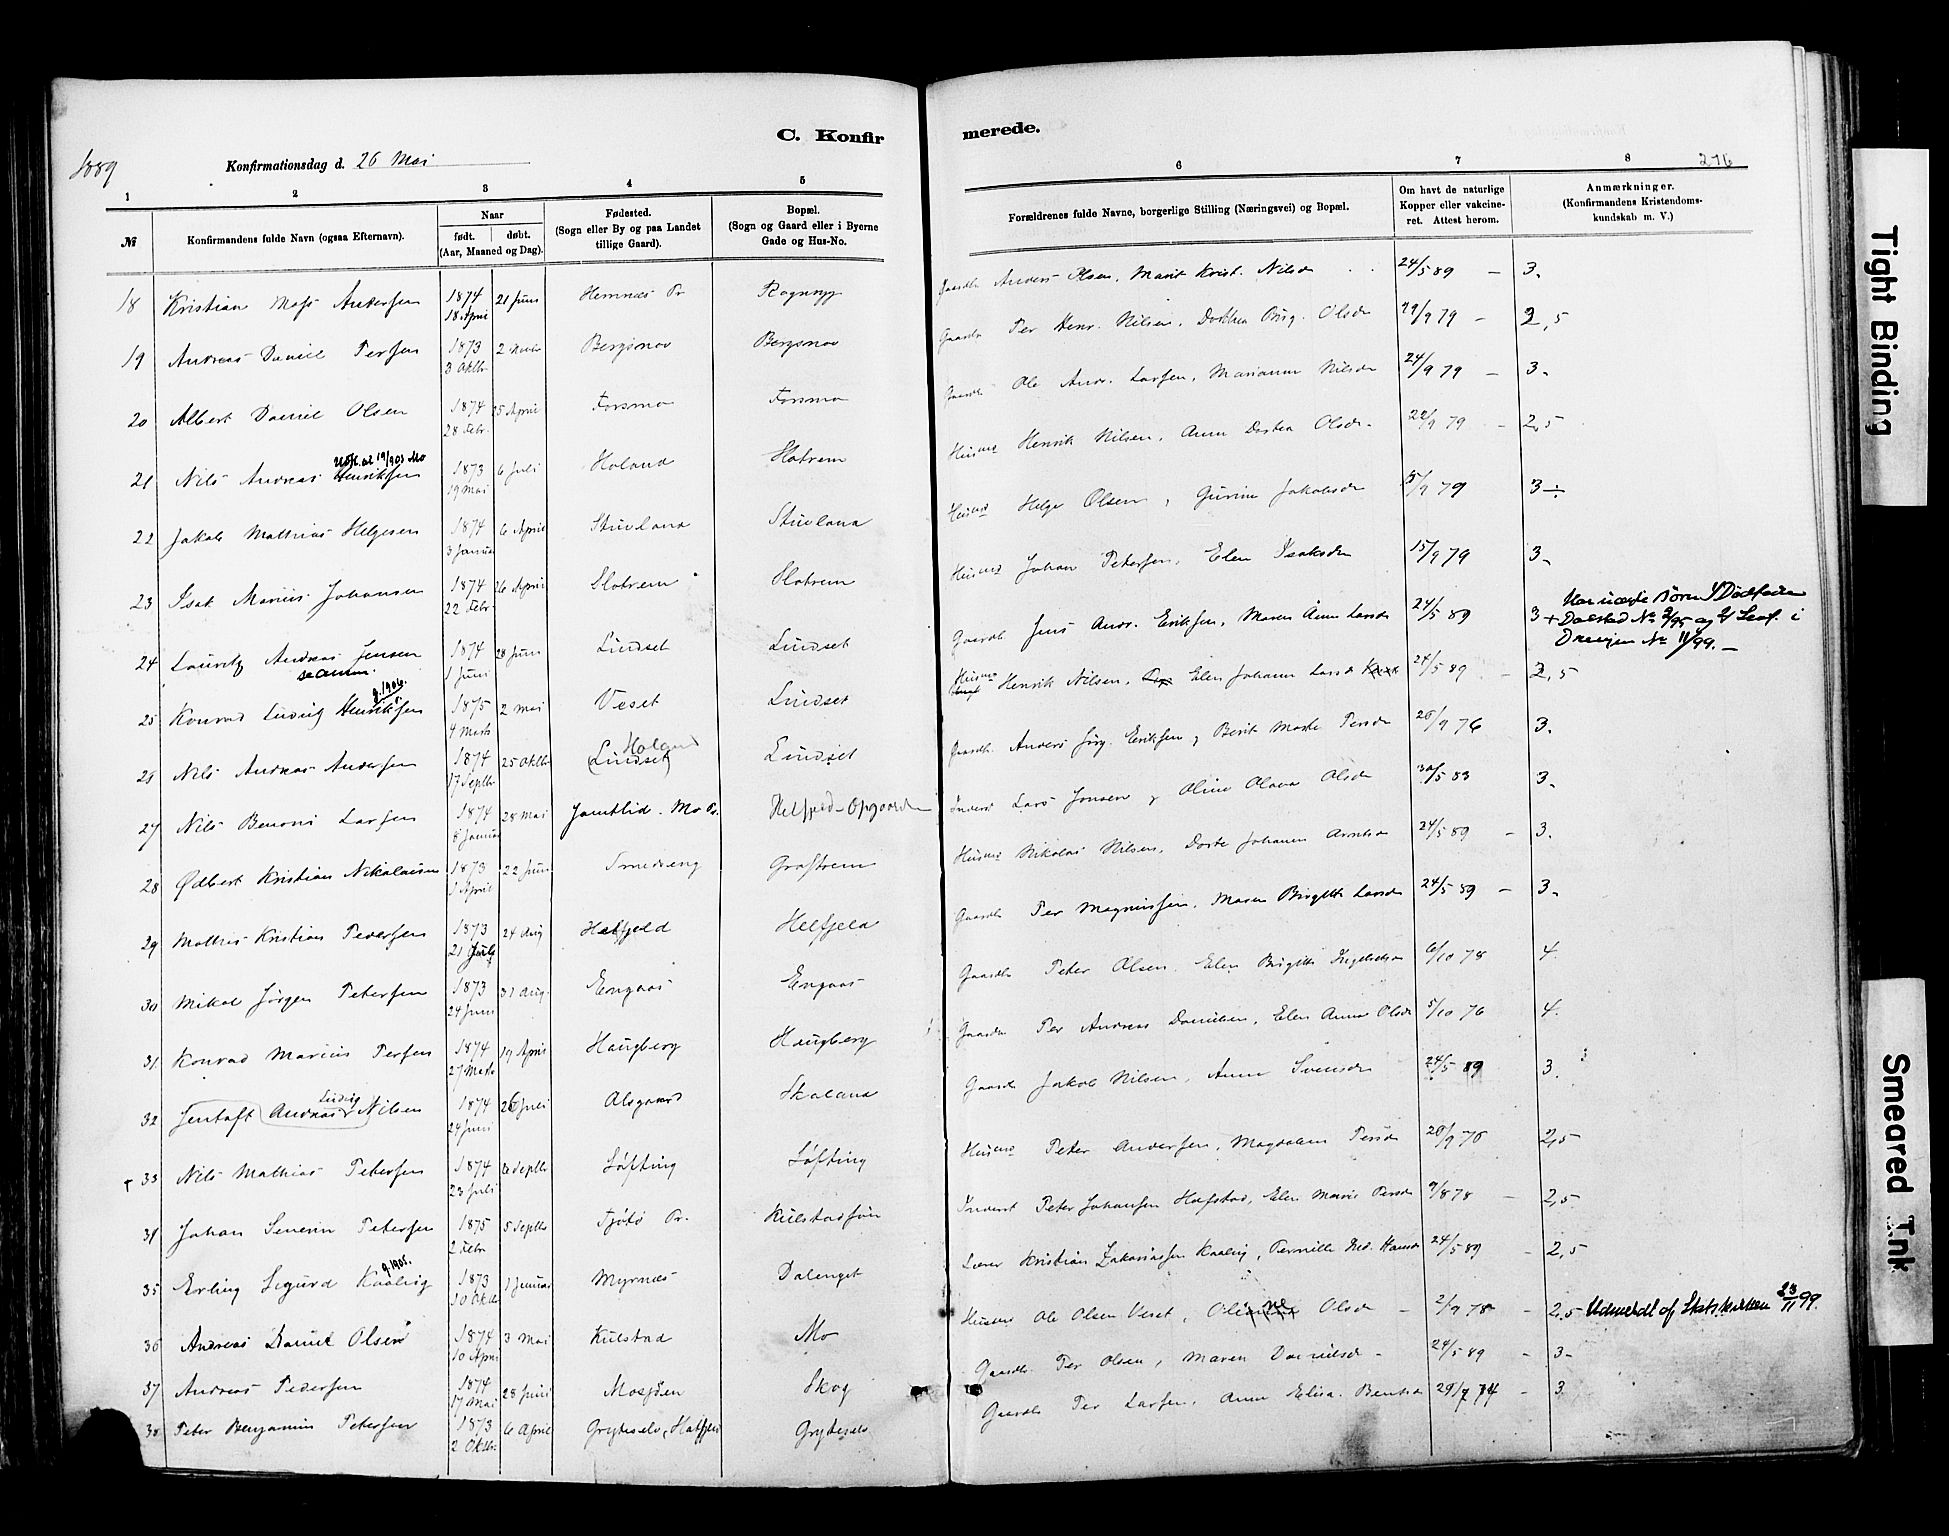 C. Konfirmerede.
1889
Konfirmationsdag d. 26 Mai
276
1 2 3 4 5 6 7 8
№
Konfirmandens fulde Navn (ogsaa Efternavn).
Naar
født. døbt.
(Aar, Maaned og Dag).
Fødested.
(Sogn eller By og paa Landet
tillige Gaard).
Bopæl.
(Sogn og Gaard eller i Byerne
Gade og Hus-No.
Forældrenes fulde Navne, borgerlige Stilling (Næringsvei) og Bopæl.
Om havt de naturlige
Kopper eller vakcine-
ret. Attest herom.
Anmærkninger.
(Konfirmandens Kristendoms-
kundskab m. V.)
18 Kristian Andersen 1874 18 April 21 Juni Hemnæs Pr. Anders Olsen, Marit Krist. Nilsd 24/5 89 – 3.
19 Andreas Daniel Persen 1873 3 Oktbr 2 Novbr Bergsnov Bergsnov Gaardb Per Henr. Nilsen, Dorthea Olsd 79 – 2,5
20 Albert Daniel Olsen 1874 28 Febr. 25 April Forsmo Forsmo Gaardb Ole Andr. Larsen, Marianne Nilsd 24/9 79 – 3.
21 Nils Andreas Henriksen 19/9 03 Mo 1873 19 Mai 6 Juli Holand Slotrem Husmd Henrik Nilsen, Anne Dortea Olsd. 22/9 79 – 2,5
22 Jakob Mathias Helgesen 1874 3 Januar 6 April Stuvland Stuvland Husmd Helge Olsen, Gurine Jakobsd 79 3 ÷
23 Isak Marius Johansen 1874 22 Febr. 26 April Slotrem Slotrem Husmd Johan Petersen, Elen Isaksd 15/9 79 3.
24 Lauritz Andreas Jensen 1874 1 Juni 28 Juni Lindset Lindset Gaardb Jens Andr. Eriksen, Maren Anne Larsd 24/5 89 3 +
Dolstad No 2/95 i
Drevjen No 11/99. –
25 Konrad Ludvig Henriksen g. 1906. 1875 4 Marts 2 Mai Veset Lindset Husmd Henrik Nilsen, Elen Johanne Larsd 24/5 89 – 2,5
26 Nils Andreas Andersen 1874 17 Septbr 25 Oktbr (Lindset) Holand Lindset Gaardb. Anders Jørg. Eriksen, Berit Marte Persd 26/9 76 3.
27 Nils Benoni Larsen 1874 8 Januar 28 Mai Jamtlid. Mo Pr. Helfjeld-Opgaarden Inderst Lars Jonsen, Oline Olava Olsd 30/5 83 3.
28 Ødbert Kristian Nikolaisen 1873 1 April 22 Juni Smedseng Grostrem Husmd Nikolai Nilsen, Dorte Johanne Arntsd 24/5 89 – 3.
29 Mathis Kristian Pedersen 1873 21 Juli 24 Aug Helfjeld Helfjeld Gaardb Per Magnussen, Maren Birgitte Larsd 24/5 89 – 3.
30 Mikal Jørgen Petersen 1873 24 Juni 31 Aug. Engaas Engaas Gaardb Peter Olsen, Elen Birgitte 6/10 78 4.
31 Konrad Marius Persen 1874 27 Marts 19 April Haugberg Haugberg Gaardb Per Andreas Danielsen, Elen Anna Olsd 5/10 76 4.
32 Jentoft (Andreas) Ludvig Nilsen 1874 24 Juni 26 Juli Alsgaard Skaland Gaardb Jakob Nilsen, Anne Svensd 24/5 89 3.
33 Nils Mathias Petersen 1874 23 Juli 6 Septbr Løfting Løfting Husmd Peter Andersen, Magdalene Persd 20/9 76 2,5
34 Johan Severin Petersen 1875 2 Febr 5 Septbr Tjøtø Pr. Kulstadsjøn Inderst Peter Johansen Hafstad, Elen Marie Persd 9/8 78 – 2,5
35 Erling Sigurd Kaalvig g. 1905. 1873 10 Oktbr 1 Januar Myrnæs Dalenget Lærer Kristian Zakariassen Kaalvig, Pernille Hansd 24/5 89 – 2,5
36 Andreas Daniel Olsen 1874 10 April 3 Mai Kulstad Mo Husmd Ole Olsen Veset, Olsd – 2/9 78 – 2,5 Udmeldt af Statskirken 23/11 99.
37 Andreas Pedersen 1874 17 Mai 28 Juni Mosjøen Skog Gaardb Per Olsen, Maren Danielsd – 24/5 89 – 3 –
38 Peter Benjamin Petersen 1873 2 Oktbr. 6 April Gryteselv, Hatfjeld Gryteselv Gaardb Per Larsen, Anne Elisa. Bentsd 29/7 74 – 3.
Tight Binding
Smeared Ink